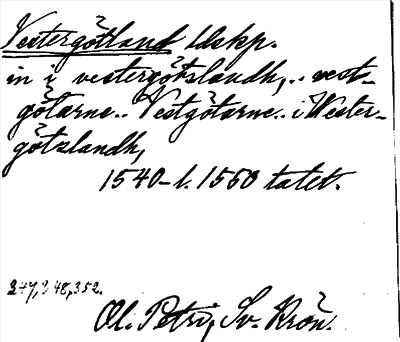 Vestergötland ldskp.
in i vestergötslandh,.. vest-
götarne.. Vestgötarne.. i Wester-
götzlandh,
1540-t. 1560 talet.
347, 348, 352.
Ol. Petri, Sv. Krön.